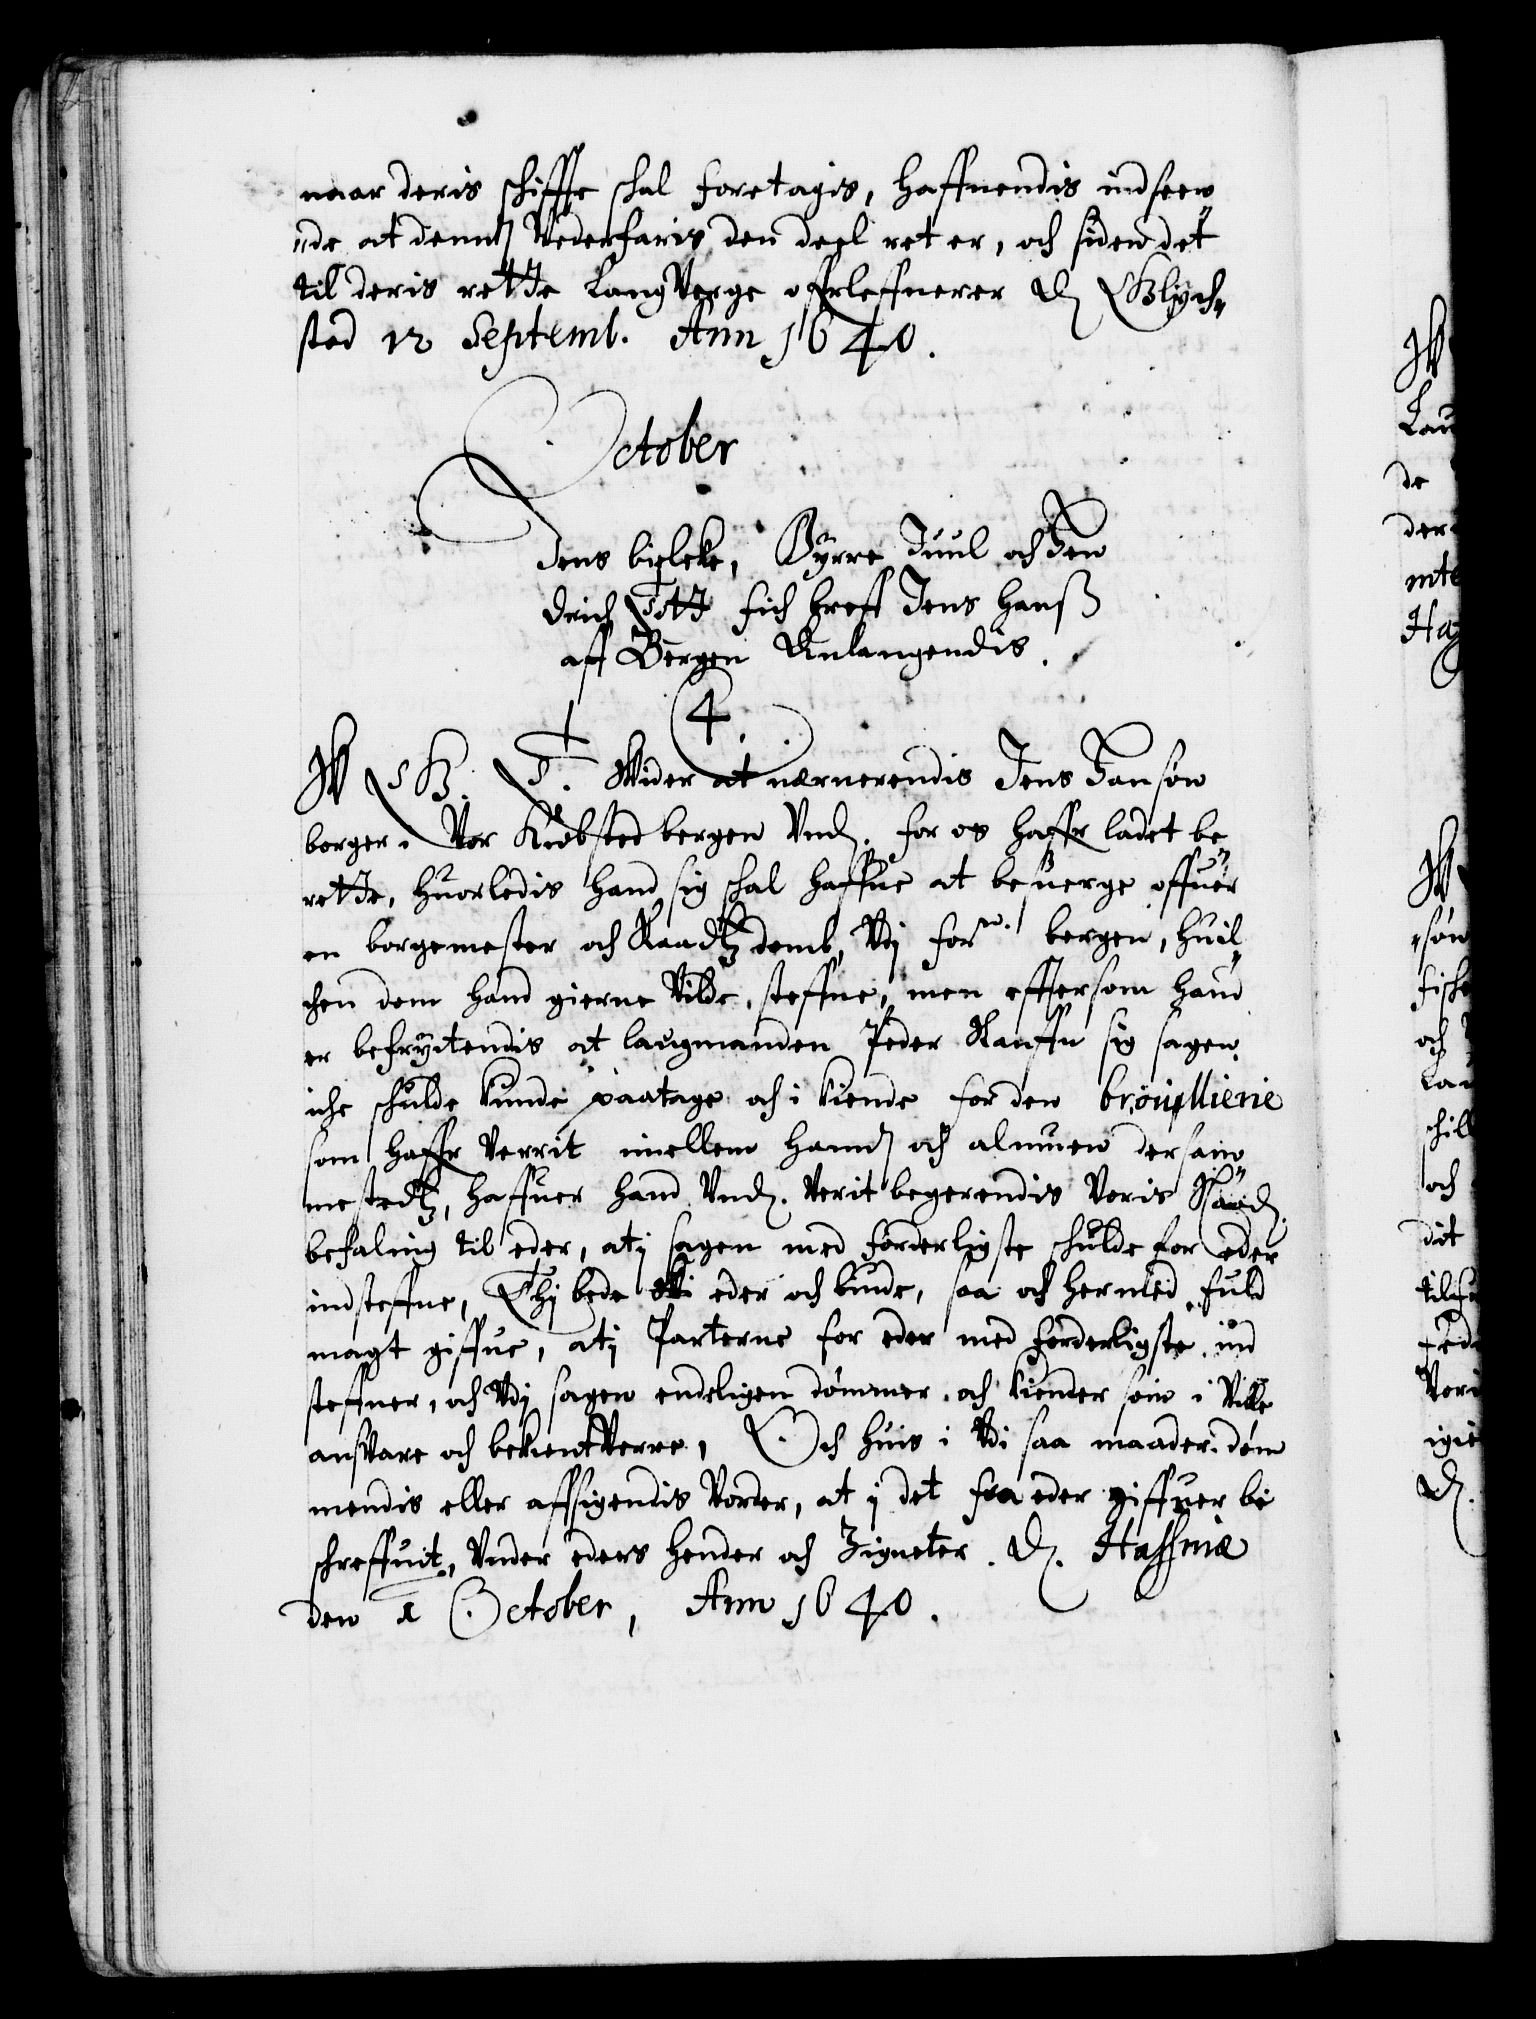 naar deris schiffte schal foretagis, haffuendis indseen
de at dennem Vederfaris den deel ret er, och siden det
til deris rette Laug Verge offrleffuerer D. Glÿck
sted 12 Septemb. Ann 1640.
October
Jens bielcke, Byrre Juul och Hen
drich Tott fich breff Jens Hanß
aff Bergen Anlangendis.
4.
W G. T. Wider at nærnerendis Jens Hansøn
borger i Vor Kiøbsted bergen Vnd. for os haffr ladet be
rette, huorledis hand sig schal haffue at besuerge offuer
en borgemester och Raadtz domb, Vdj forⁿ. bergen, huil
chen dom hand gierne Vilde steffne, men effttersom hand
er befryctendis at laugmanden Peder sig sagen
iche schulde kunde paatage och i kiende for den brouillierie
som haffr Verrit imellem hannem och almuen der sam
mestedtz, haffuer hand Vnd. Verit begerendis Voris Naad.
befaling til eder, atj sagen med forderligste schulde for eder
indsteffne, Thj bede Wi eder och kunde, saa och hermed fuld
magt giffue, atj Parterne for eder med forderligste ind
steffner, och Vdj sagen endeligen dømmer och kiender som i Ville
ansVare och bekient Verre, Och huis i Vdi saa maader døm
mendis eller affsigendis Vorder, at j det fra eder giffuer be
schreffuit, Vnder eders hender och Zigneter. D. Haffniæ
den 1 October, Ann 1640.